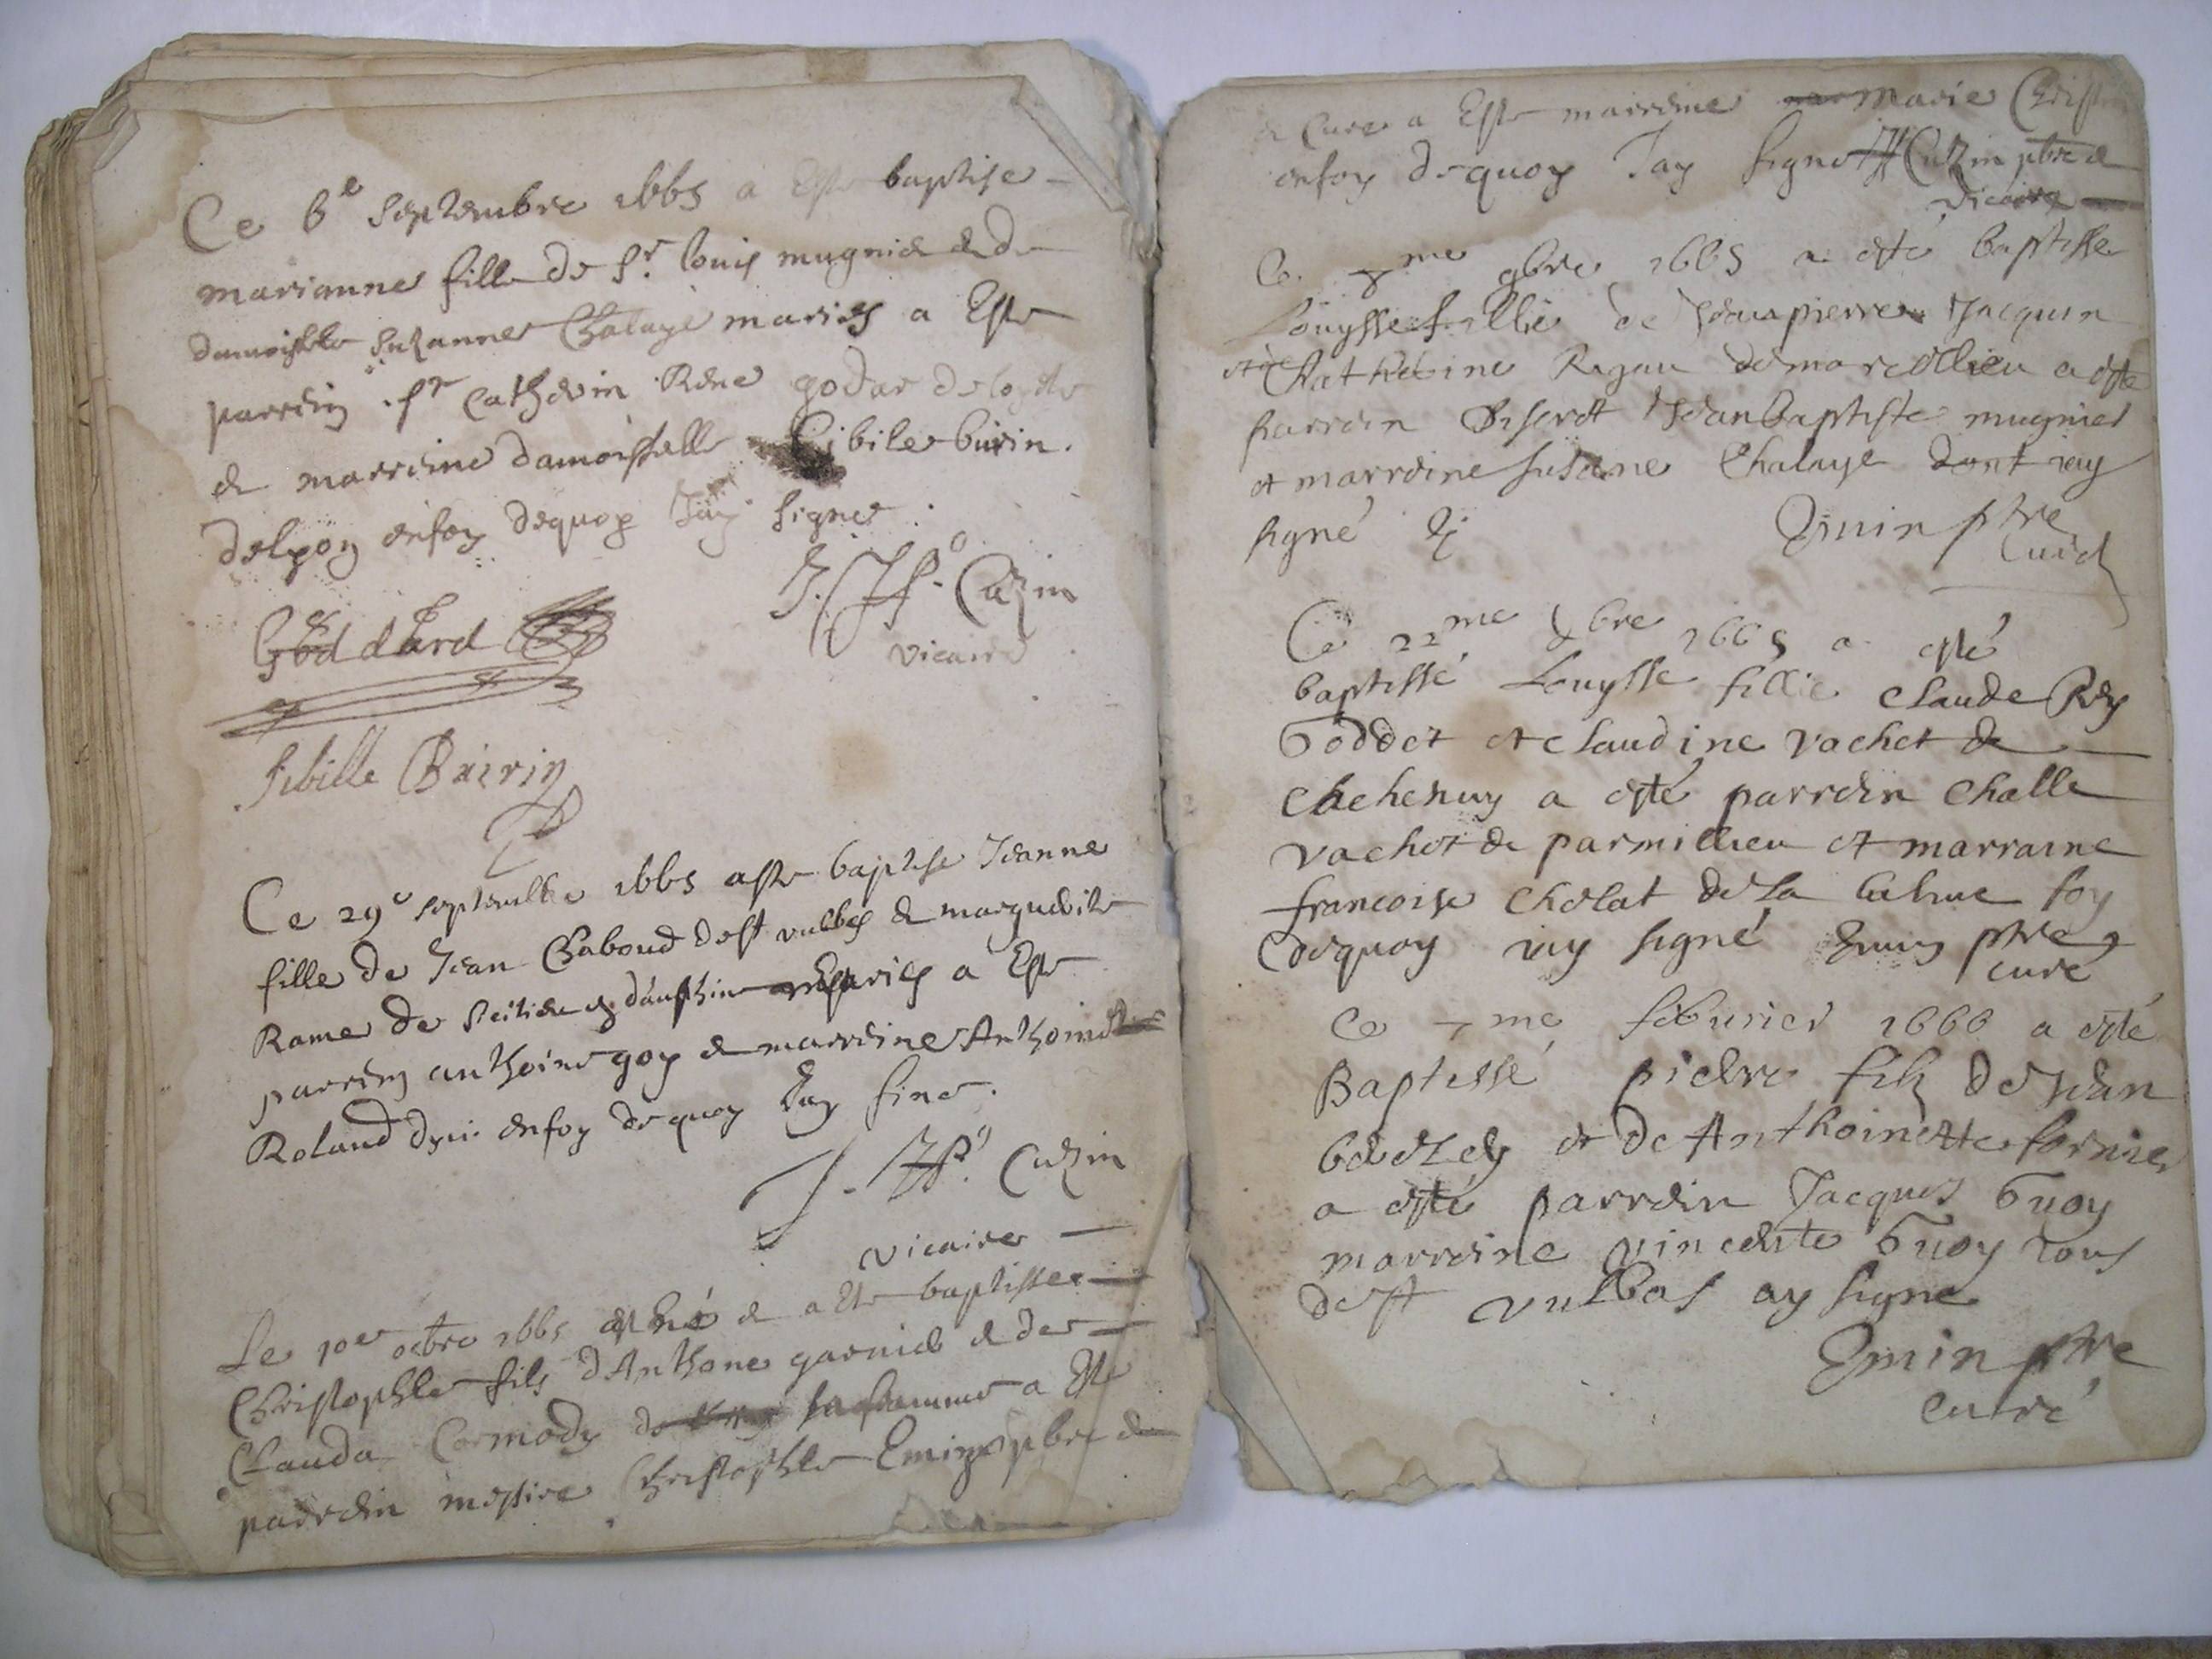 Ce 6e septembre 1665 a este baptise
marianne fille de sr. louis mugnié & de
damoiselle suzanne Chalaye mariés a este
parrein sr Catherin Rene godar
& marreine damoisselle Sibile buirin
delpoy enfoy dequoy Jay signe
Goddard
Cuzin
vicaire
sibille Buirin
Ce 29e septembre 1665 a este baptise Jeanne
fille de Jean Chaboud dest vulbas & marguerite
Rame de mariés a este
parrein anthoine goy & marreine Anthoinette
Roland enfoy de quoy Jay sine.
J. Cuzin
vicaire
Le 10e octbre 1665 est né & a este baptisse
Christophle fils dAnthone garnier & de
Clauda Cormody de sa famme a este
parrein messire Christophle Emin pbre &
& Cure a este marreine Marie
enfoy dequoy Jay signe Cuzin pbre &
vicaire
Ce me 9bre 1665 a esté baptisse
Louysse fillie de Jean pierre Jacquin
et de Catherine Rigau de marcillieu a este
parrein Jean baptiste mugnier
et marreine susane Chalaye dont iay
signé Emin ptre
Curé
Ce 22me bre 1665 a esté
baptissé Louysse fillie Claude Rey
Goddet et claudine vachet de
a esté parrein Challe
vachet de parmillieu et marraine
francoise cholat de la foy
dequoy iay signé Emin ptre
curé
Ce me feburier 1666 a esté
Baptessé pierre filz de Jean
et de Anthoinette fornier
a esté parrein Jacques Guoy
marreine vincente Guoy tous
dest vulbas ay signe
Emin ptre
curé